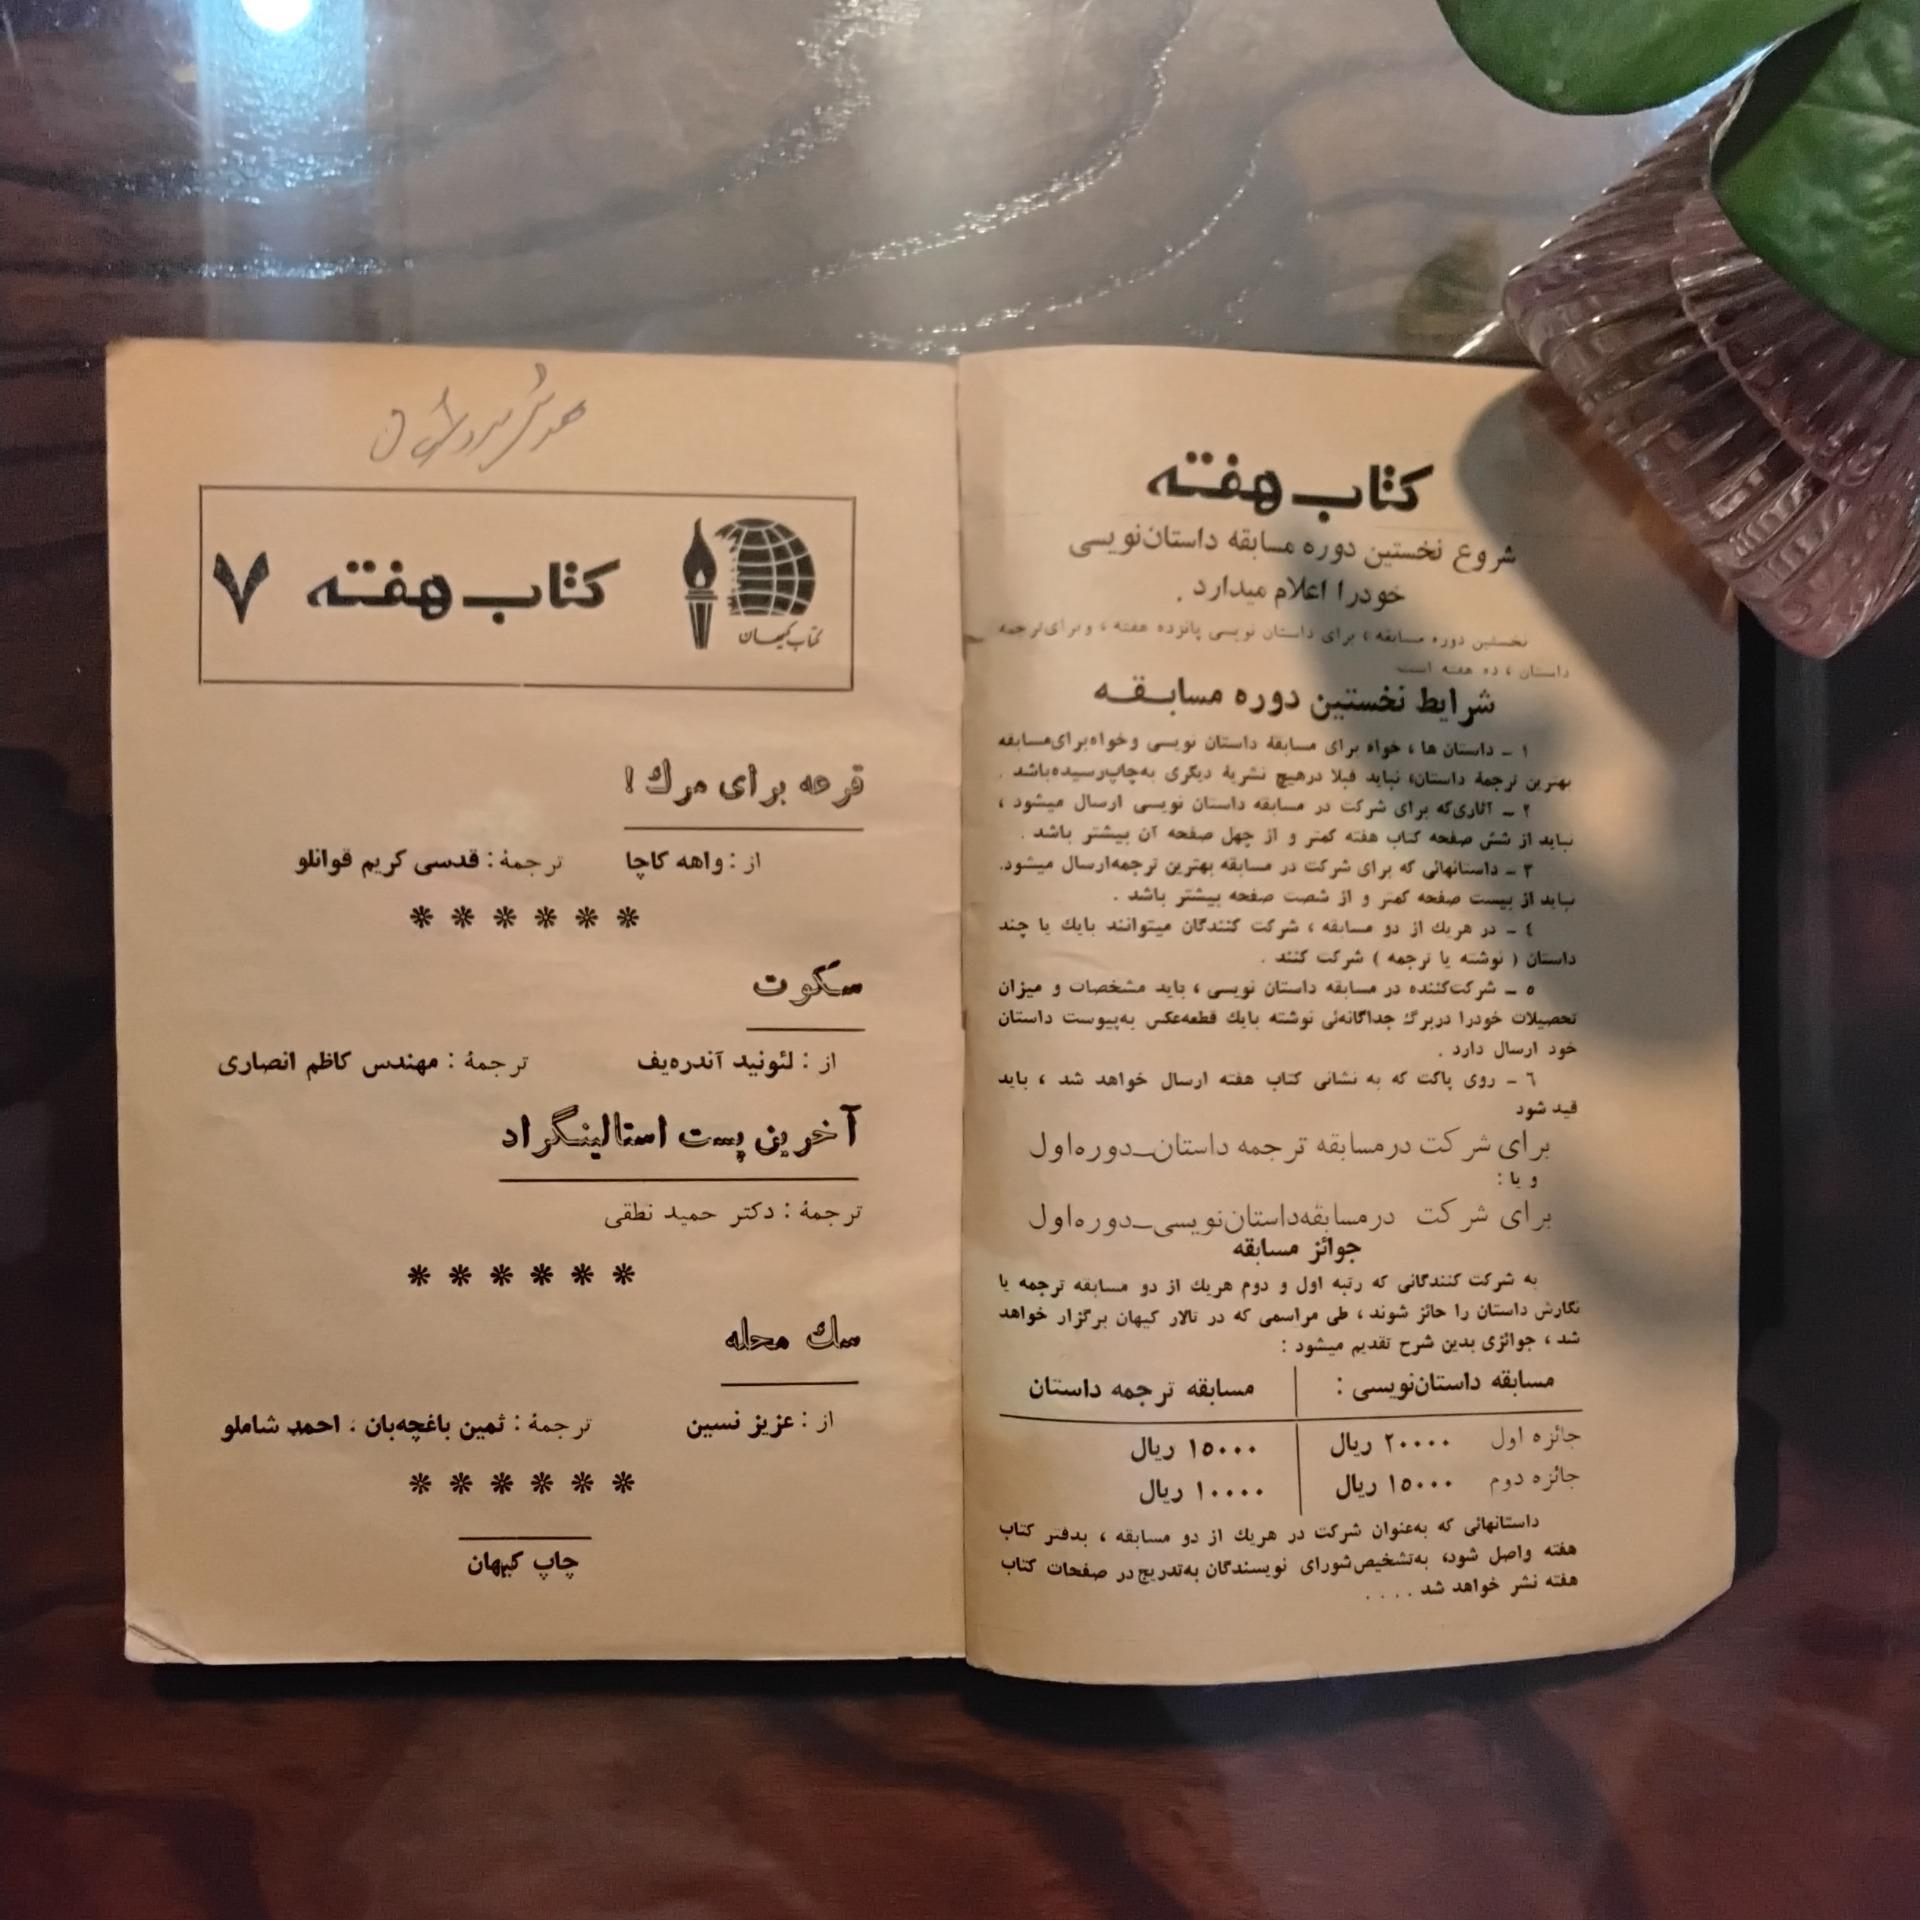 کتاب هفته
شروع نخستین دوره مسابقه داستان‌نویسی
خودرا اعلام میدارد .
نخستین دوره مسابقه ، برای داستان نویسی پانزده هفته ، وبرای ترجمه
داستان ، ده هفته است
شرایط نخستین دوره مسابقه
۱ ـ داستان ها ، خواه برای مسابقهٔ داستان نویسی وخواه‌برای‌مسابقه
بهترین ترجمهٔ داستان، نباید قبلا درهیچ نشریهٔ دیگری به‌چاپ‌رسیده‌باشد .
۲ ـ آثاری‌که برای شرکت در مسابقه داستان نویسی ارسال میشود ،
نباید از شش صفحه کتاب هفته کمتر و از چهل صفحه آن بیشتر باشد .
۳ ـ داستانهائی که برای شرکت در مسابقه بهترین ترجمه‌ارسال میشود.
نباید از بیست صفحه کمتر و از شصت صفحه بیشتر باشد .
٤ ـ در هریك از دو مسابقه ، شرکت کنندگان میتوانند بایك یا چند
داستان ( نوشته یا ترجمه ) شرکت کنند .
٥ ـ شرکت‌کننده در مسابقه داستان نویسی ، باید مشخصات و میزان
تحصیلات خودرا دربرگ جداگانه‌ئی نوشته بایك قطعه‌عکس به‌پیوست داستان
خود ارسال دارد .
٦ ـ روی پاکت که به نشانی کتاب هفته ارسال خواهد شد ، باید
قید شود
برای شرکت درمسابقه ترجمه داستان_دوره‌اول
و یا :
برای شرکت درمسابقه‌داستان‌نویسی_دوره‌اول
جوائز مسابقه
به شرکت کنندگانی که رتبه اول و دوم هریك از دو مسابقه ترجمه یا
نگارش داستان را حائز شوند ، طی مراسمی که در تالار کیهان برگزار خواهد
شد ، جوائزی بدین شرح تقدیم میشود :
مسابقه داستان‌نویسی : مسابقه ترجمه داستان
جائزه اول ۲۰۰۰۰ ریال ۱۵۰۰۰ ریال
جائزه دوم ۱۵۰۰۰ ریال ۱۰۰۰۰ ریال
داستانهائی که به‌عنوان شرکت در هریك از دو مسابقه ، بدفتر کتاب
هفته واصل شود، به‌تشخیص‌شورای نویسندگان به‌تدریج در صفحات کتاب
هفته نشر خواهد شد . . . .
کتاب هفته ۷
کتاب کیهان
قرعه برای مرك !
از : واهه کاچا ترجمهٔ : قدسی کریم قوانلو
سکوت
از : لئونید آندره‌یف ترجمهٔ : مهندس کاظم انصاری
آخرین پست استالینگراد
ترجمهٔ : دکتر حمید نطقی
سك محله
از : عزیز نسین ترجمهٔ : ثمین باغچه‌بان ، احمد شاملو
چاپ کیهان